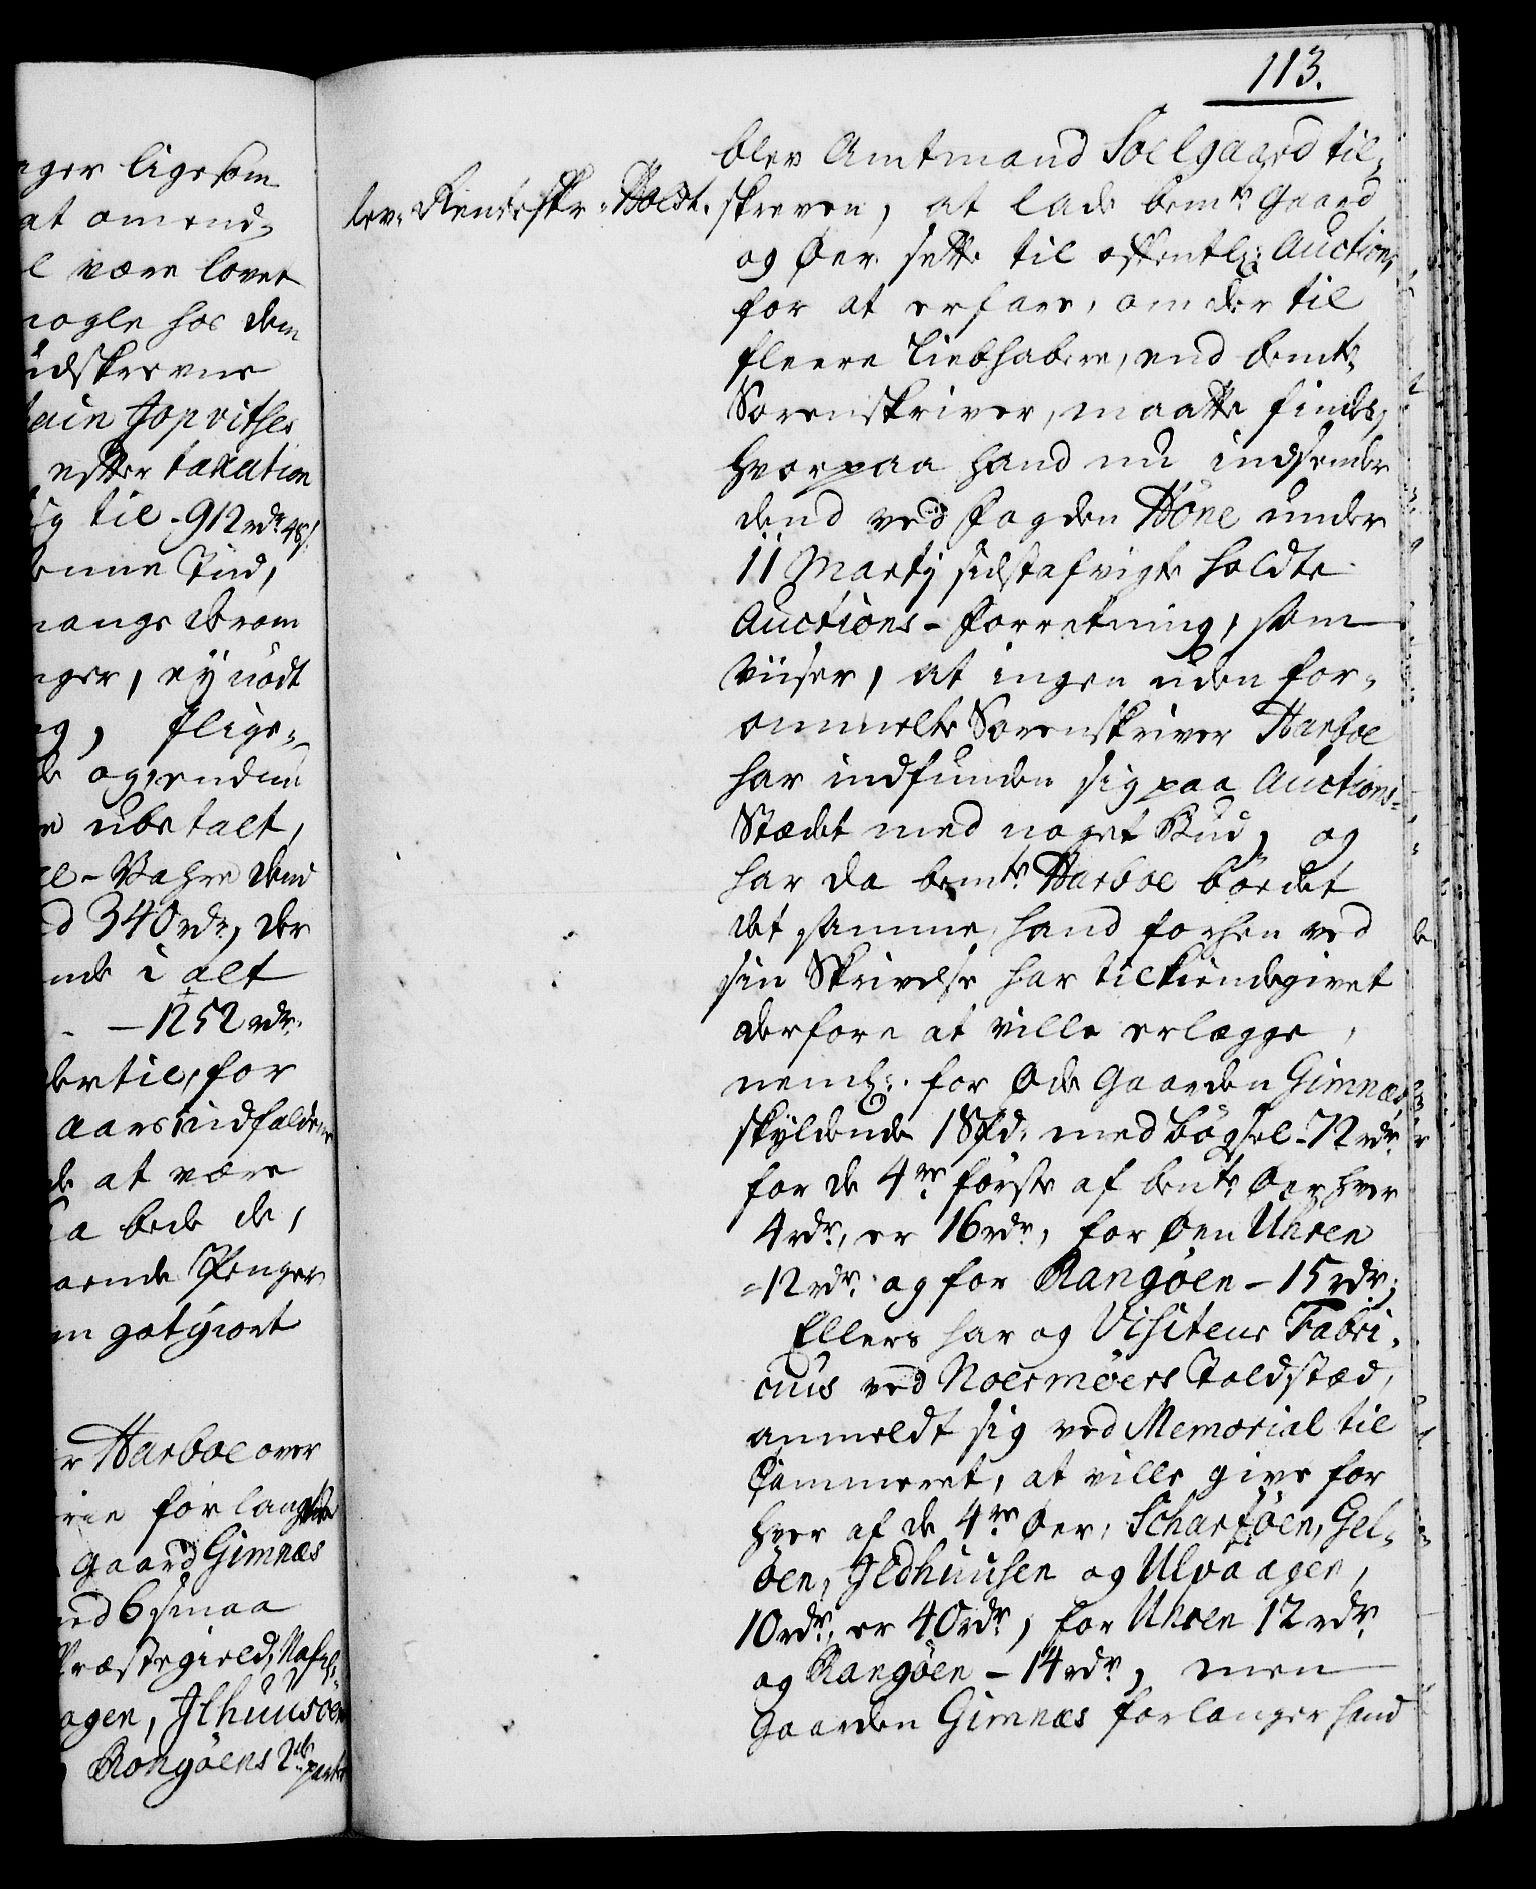 113.
nger ligesom
at omend-
l være lovet
nogle hos dem
udskrevne
tain Jopvitses
efter taxation
sig til - 912 rdr 48 s:
denne Tiid,
mangedbrom
nger, ey nødt
og, flige-
de og endnu
er ubetalt,
el-Bahre dend
ed 340 rdr, der
nde i alt
- - 1252 rdr.
dertil, for
aars indfaldene
de at være
da bede de,
aaende Penger
en gotgiort
er Harboe over
rien forlangte
Gaard Gimnæs
med 6 smaa
Præstegield, Nafnl:
agen, Jlhuusøen
Rongöens 2de parter
lev: Renteskr: Holdt.
blev Amtmand Soelgaard til-
skreven, at lade bemte Gaard
og Öer sette til offentl: Auction,
for at erfare, om der til
fleere Liebhabere, end bemte
Sorenskriver, maatte findes,
hvorpaa hand nu indsender
dend ved Fogden Höne under
11 Martij sidstafvigte holdte
Auctions-Forretning, som
viiser, at ingen uden for-
ommelte Sorenskriver Harboe
har indfunden sig paa Auctions-
Stædet med noget Bud, og
har da bemte Harboe bödet
det samme, hand forhen ved
sin Skrivelse har tilkiendegivet
derfore at ville erlægge,
neml: for Öde Gaarden Gimnæs,
skyldende 18 ℔d: med bögsel - 72 rdr
for de 4re förste af bemte Öer, hver
4 rdr, er 16 rdr, for Öen Uhren
- 12 rdr. og for Rangöen - 15 rdr;
Ellers har og Visiteur Fabri-
cius ved Noermöers Toldstæd,
anmeldt sig ved Memorial til
Cammeret, at ville give for
hver af de 4re Öer, Scharföen, Gel-
öen, Jldhuusen og Ulvaagen,
10 rdr, er 40 rdr, for Uhren 12 rdr
og Rangöen - 14 rdr, men
Gaarden Gimnæs forlanger hand